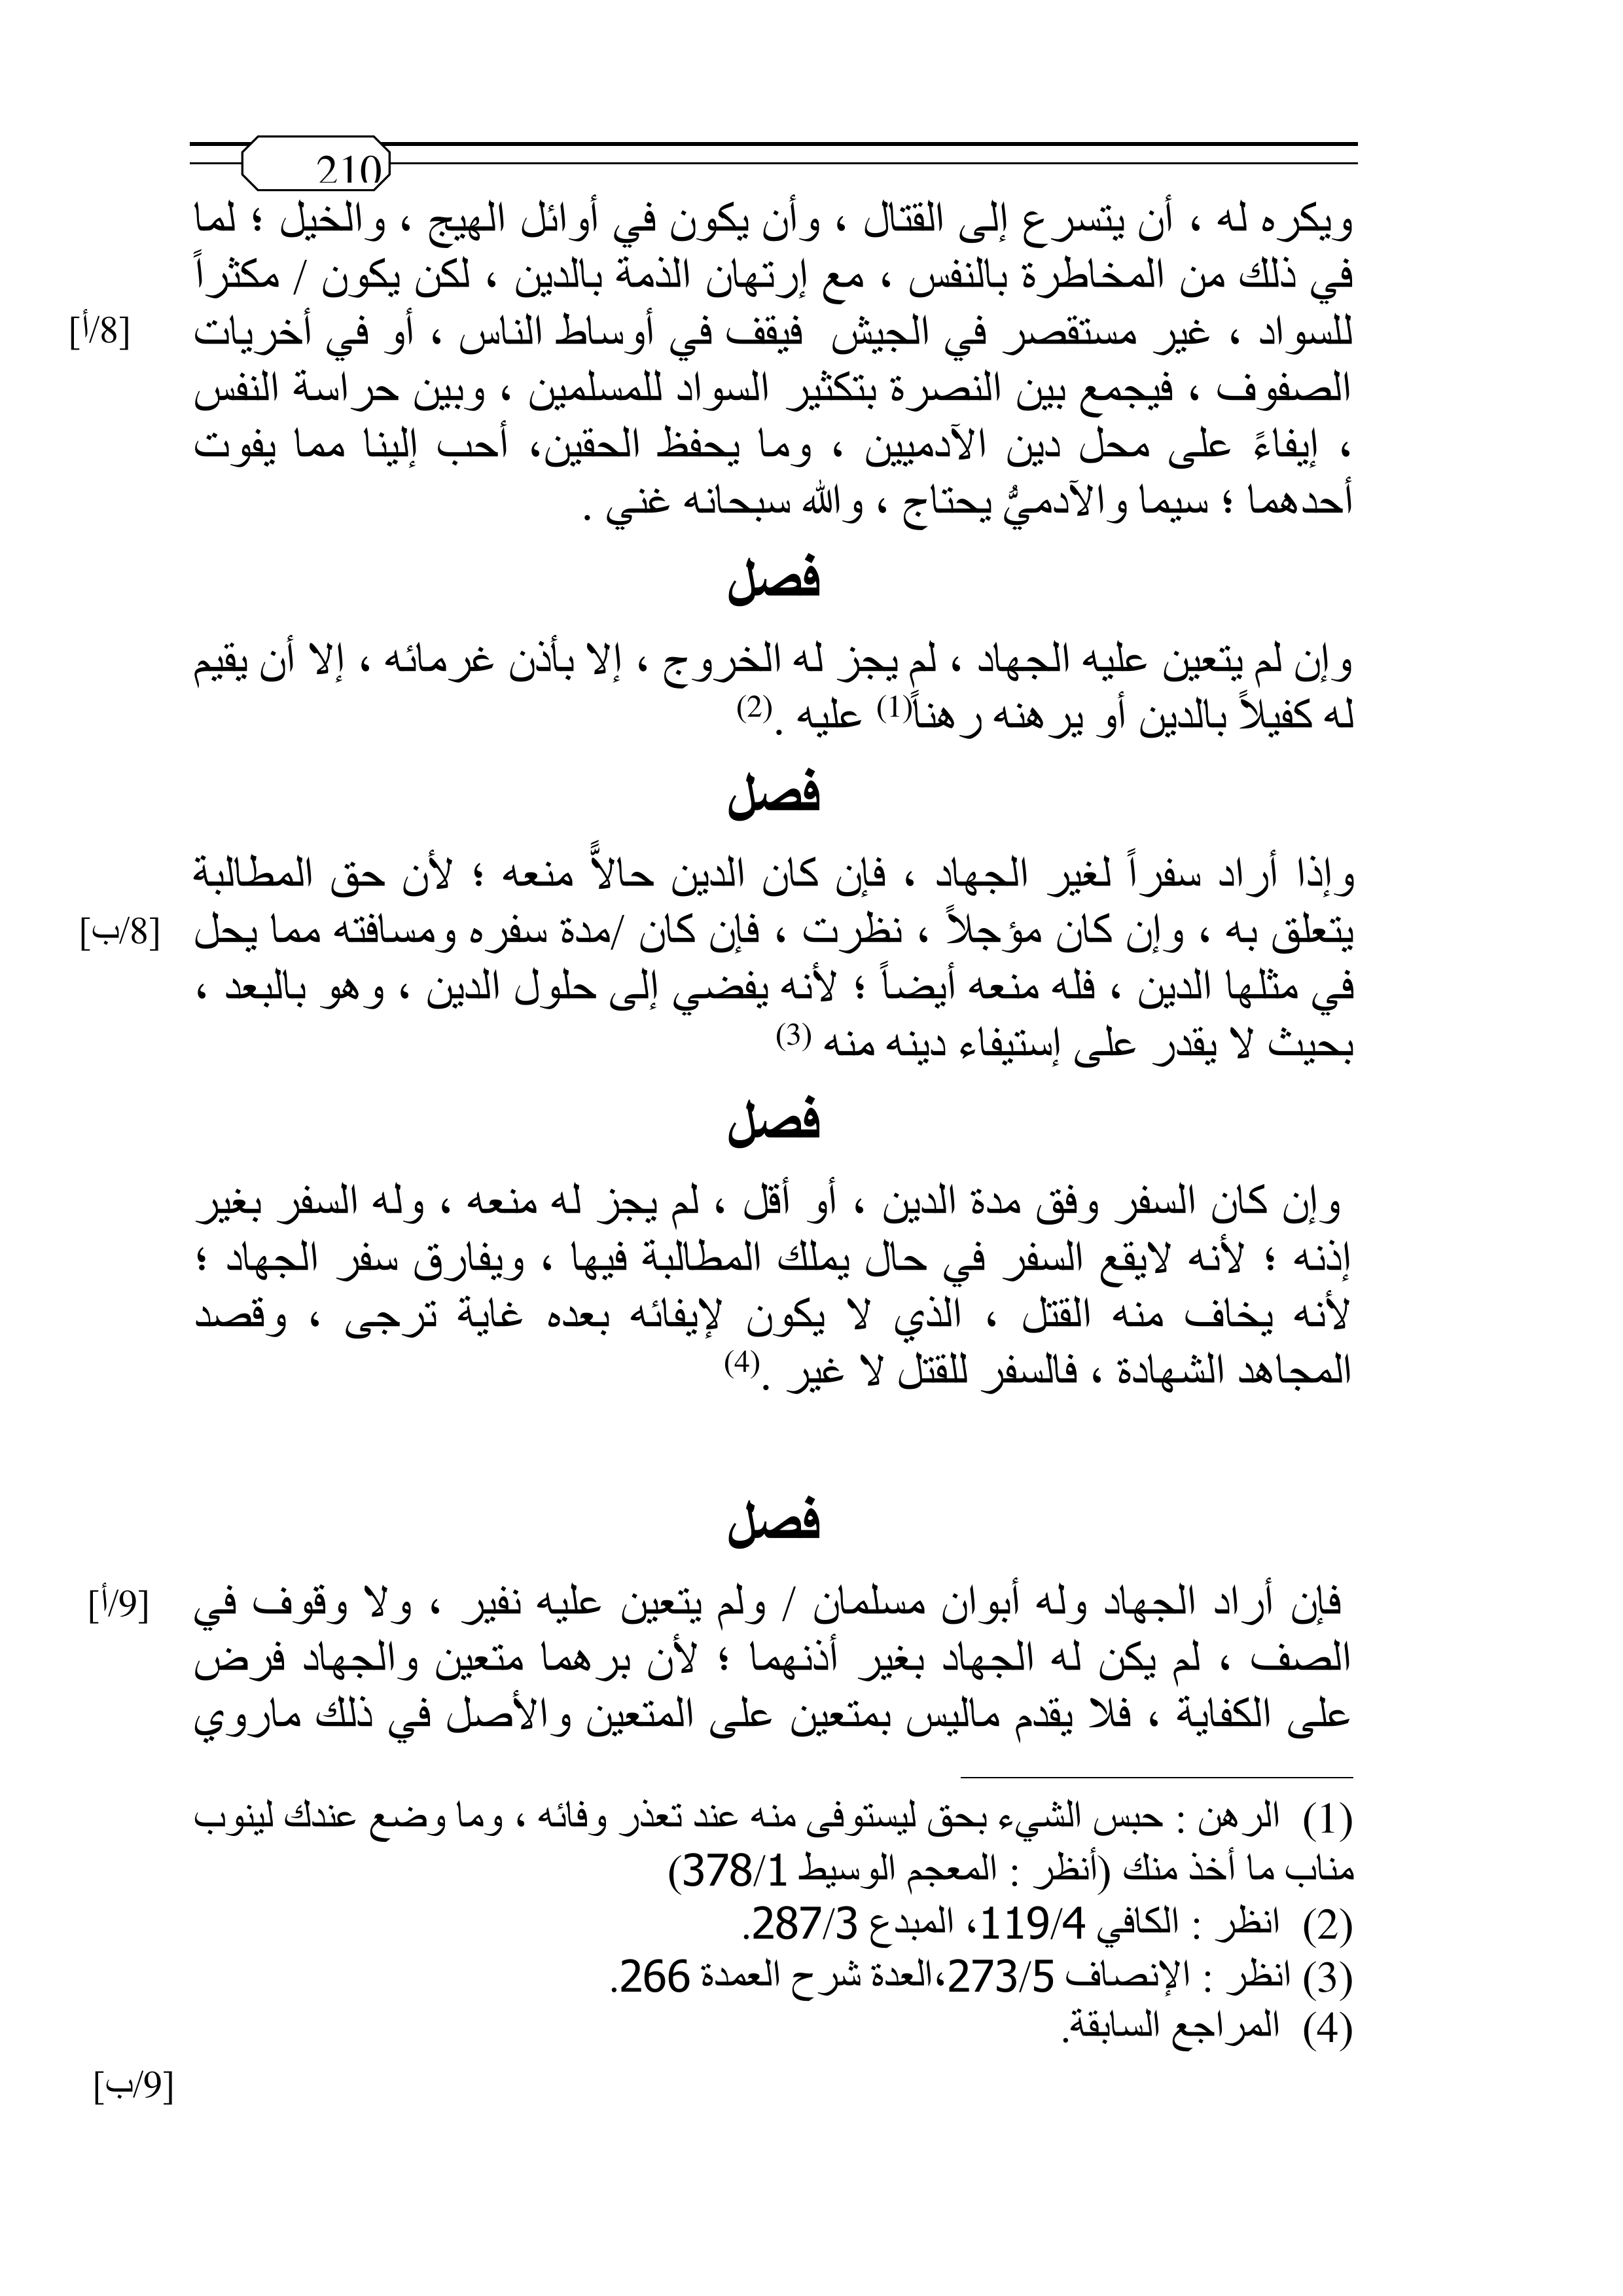 210
ويكره له ، أن يتسرع إلى القتال ، وأن يكون في أوائل الهيج ، والخيل ؛ لما
في ذلك من المخاطرة بالنفس ، مع إرتهان الذمة بالدين ، لكن يكون / مكثراً
للسواد ، غير مستقصر في الجيش فيقف في أوساط الناس ، أو في أخريات
[8/أ]
الصفوف ، فيجمع بين النصرة بتكثير السواد للمسلمين ، وبين حراسة النفس
، إيفاءً على محل دين الآدميين ، وما يحفظ الحقين، أحب إلينا مما يفوت
أحدهما ؛ سيما والآدميُّ يحتاج ، والله سبحانه غني .
فصل
وإن لم يتعين عليه الجهاد ، لم يجز له الخروج ، إلا بأذن غرمائه ، إلا أن يقيم
له كفيلاً بالدين أو يرهنه رهناً(1) عليه .(2)
فصل
وإذا أراد سفراً لغير الجهاد ، فإن كان الدين حالاًّ منعه ؛ لأن حق المطالبة
يتعلق به ، وإن كان مؤجلاً ، نظرت ، فإن كان /مدة سفره ومسافته مما يحل
[8/ب]
في مثلها الدين ، فله منعه أيضاً ؛ لأنه يفضي إلى حلول الدين ، وهو بالبعد ،
بحيث لا يقدر على إستيفاء دينه منه (3)
فصل
وإن كان السفر وفق مدة الدين ، أو أقل ، لم يجز له منعه ، وله السفر بغير
إذنه ؛ لأنه لايقع السفر في حال يملك المطالبة فيها ، ويفارق سفر الجهاد ؛
لأنه يخاف منه القتل ، الذي لا يكون لإيفائه بعده غاية ترجى ، وقصد
المجاهد الشهادة ، فالسفر للقتل لا غير .(4)
فصل
فإن أراد الجهاد وله أبوان مسلمان / ولم يتعين عليه نفير ، ولا وقوف في
[9/أ]
الصف ، لم يكن له الجهاد بغير أذنهما ؛ لأن برهما متعين والجهاد فرض
على الكفاية ، فلا يقدم ماليس بمتعين على المتعين والأصل في ذلك ماروي
(1) الرهن : حبس الشيء بحق ليستوفى منه عند تعذر وفائه ، وما وضع عندك لينوب
مناب ما أخذ منك (أنظر : المعجم الوسيط 378/1)
(2) انظر : الكافي 119/4، المبدع 287/3.
(3) انظر : الإنصاف 273/5،العدة شرح العمدة 266.
(4) المراجع السابقة.
[9/ب]